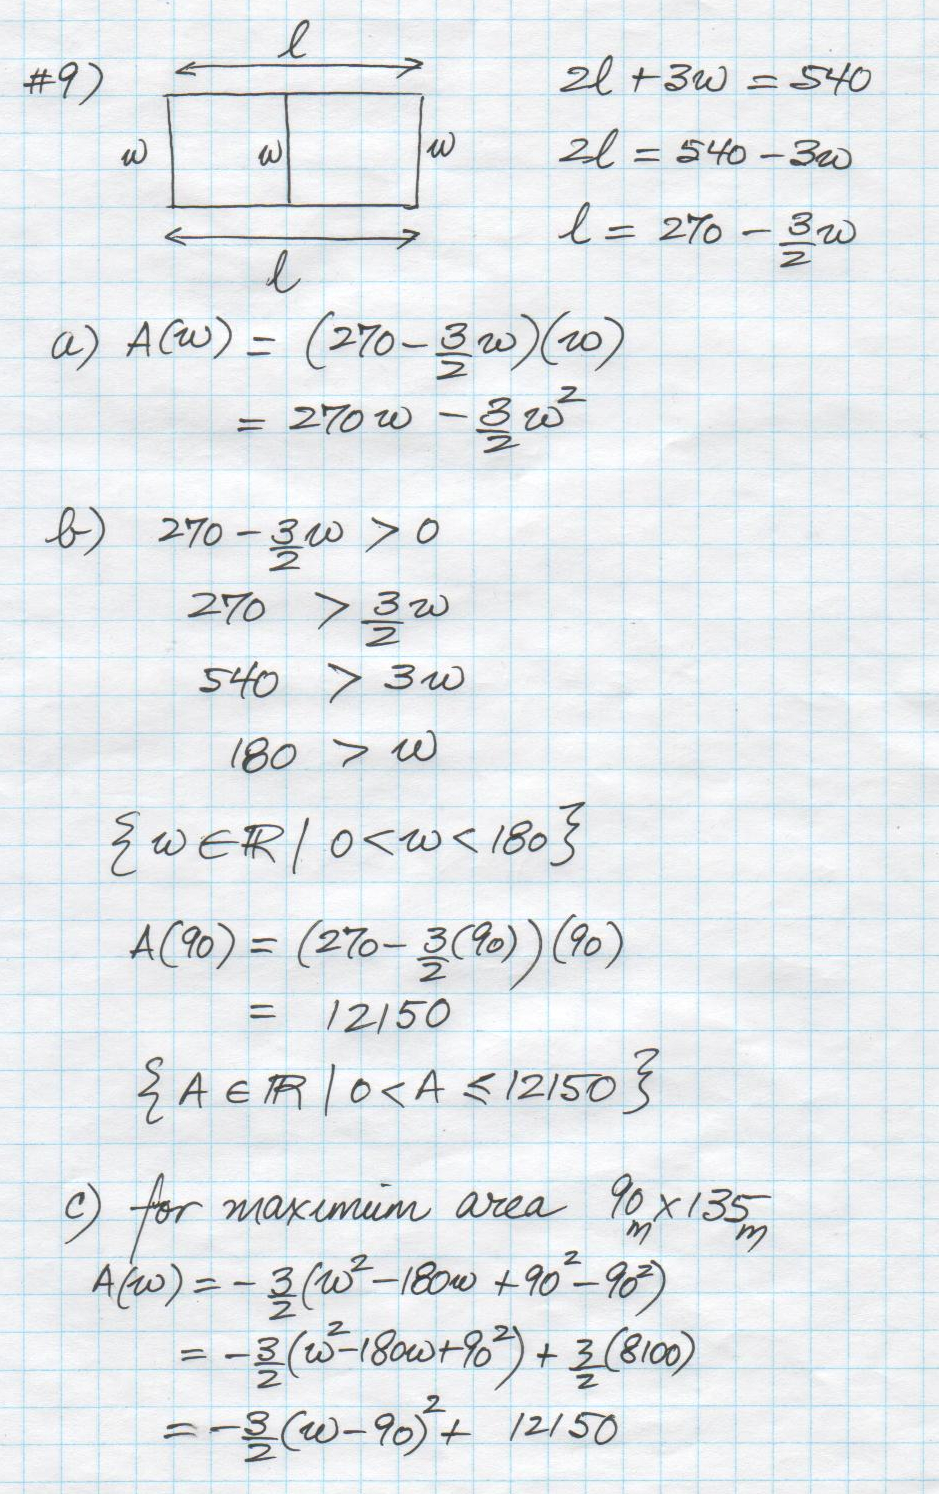 #9)
l
w w w
l
2l + 3w = 540
2l = 540 - 3w
l = 270 - 3/2 w
a) A(w) = (270 - 3/2 w)(w)
= 270w - 3/2 w²
b) 270 - 3/2 w > 0
270 > 3/2 w
540 > 3w
180 > w
{w ∈ ℝ | 0 < w < 180}
A(90) = (270 - 3/2(90))(90)
= 12150
{A ∈ ℝ | 0 < A ≤ 12150}
c) for maximum area 90m × 135m
A(w) = - 3/2(w² - 180w + 90² - 90²)
= - 3/2(w² - 180w + 90²) + 3/2(8100)
= - 3/2(w - 90)² + 12150